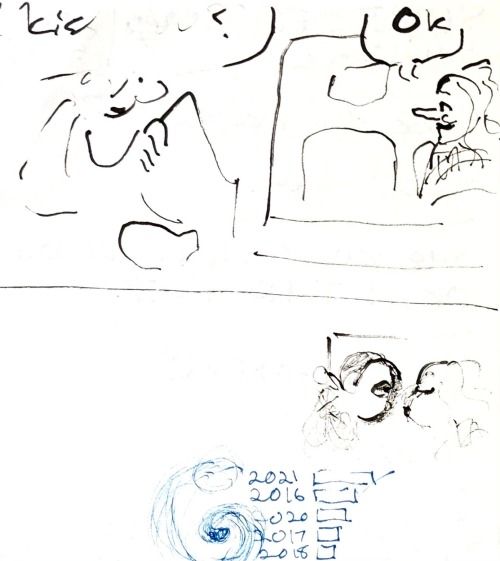 kis ?
Ok
2021
2016
2020
2017
2018